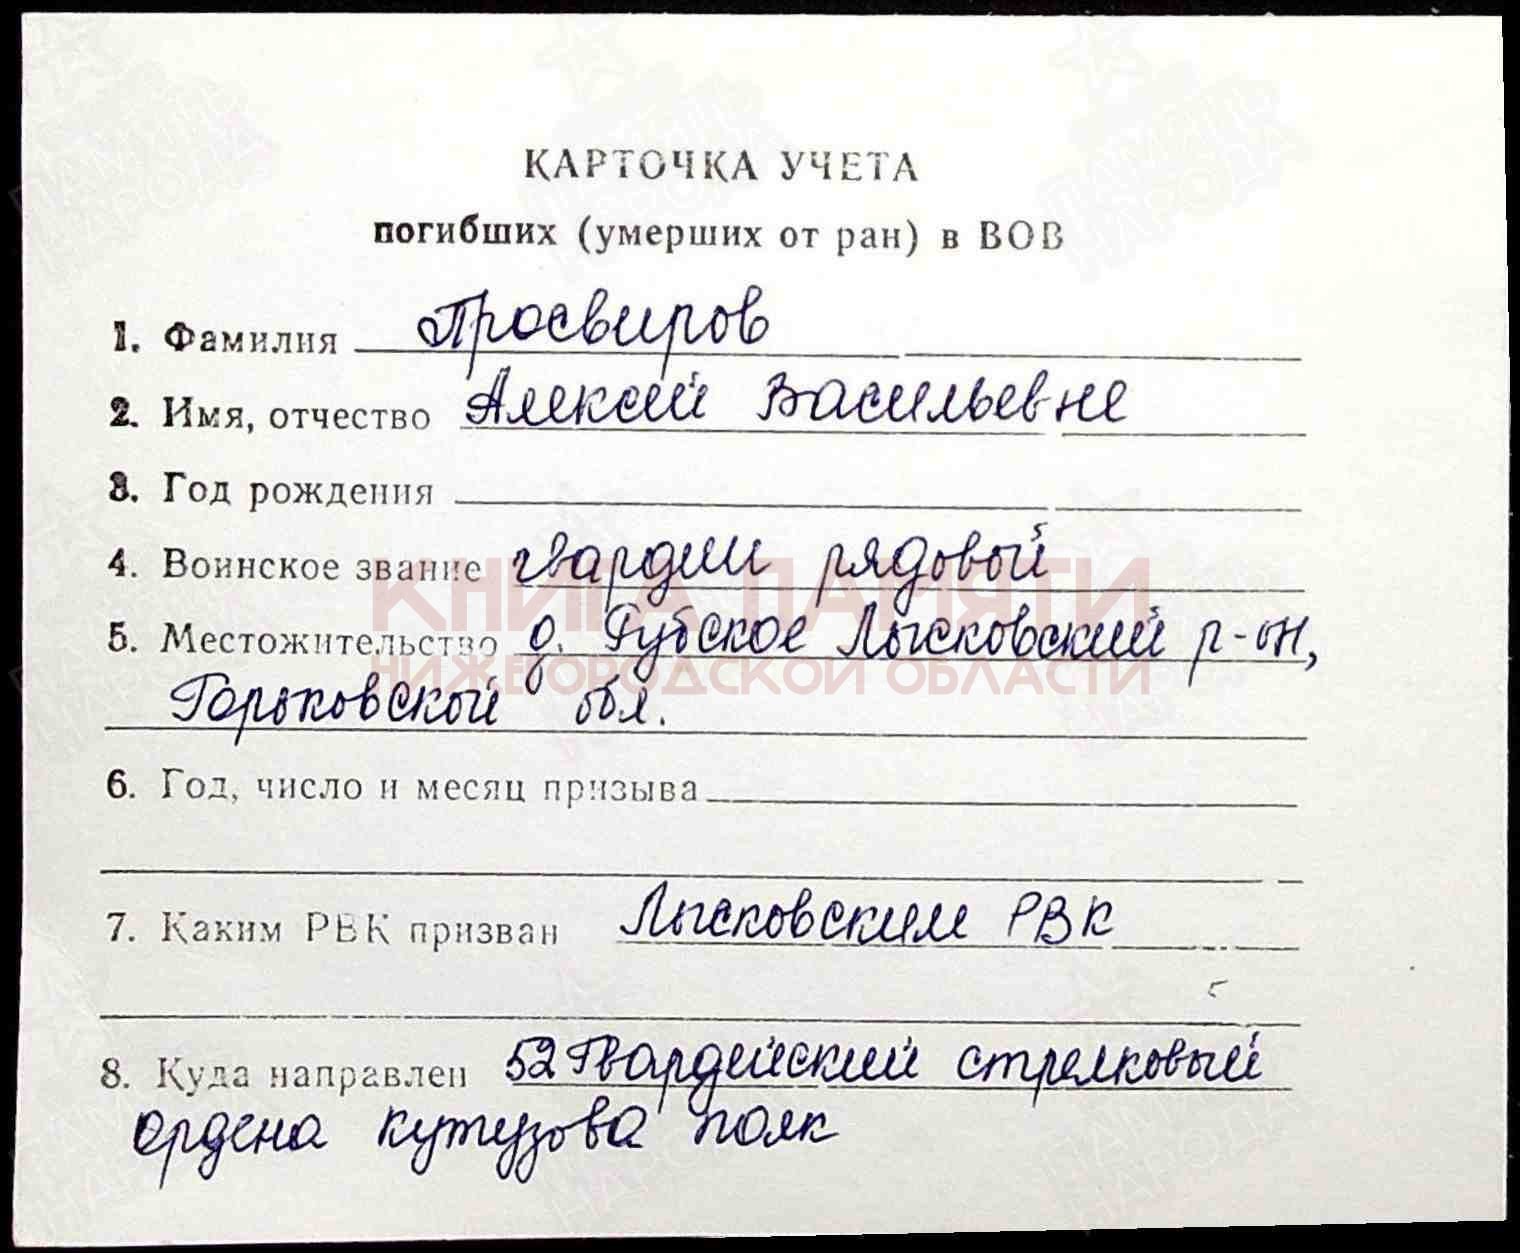 КАРТОЧКА УЧЕТА
погибших (умерших от ран) в ВОВ
1. Фамилия Просвиров
2. Имя, отчество Алексей Васильевне
3. Год рождения
4. Воинское звание гвардии рядовой
5. Местожительство д. Губское Лысковский р-он,
Горьковской обл.
КНИГА ПАМЯТИ
НИЖЕГОРОДСКОЙ ОБЛАСТИ
6. Год, число и месяц призыва
7. Каким РВК призван Лысковским РВК
8. Куда направлен 52 Гвардейский стрелковый
ордена кутузова полк
ПАМЯТЬ НАРОДА